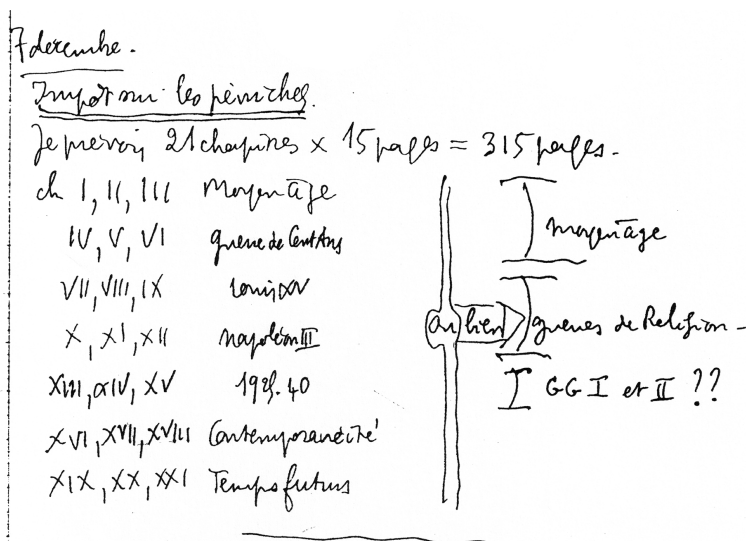 7 décembre.
Impôt sur les péniches.
Je prévois 21 chapitres × 15 pages = 315 pages.
ch I, II, III Moyen âge
IV, V, VI guerre de Cent Ans
VII, VIII, IX Louis XV
X, XI, XII Napoléon III
XIII, XIV, XV 40
XVI, XVII, XVIII Contemporanéité
XIX, XX, XXI Temps futurs
ou bien
moyen âge
guerres de Religion -
GG I et II ??